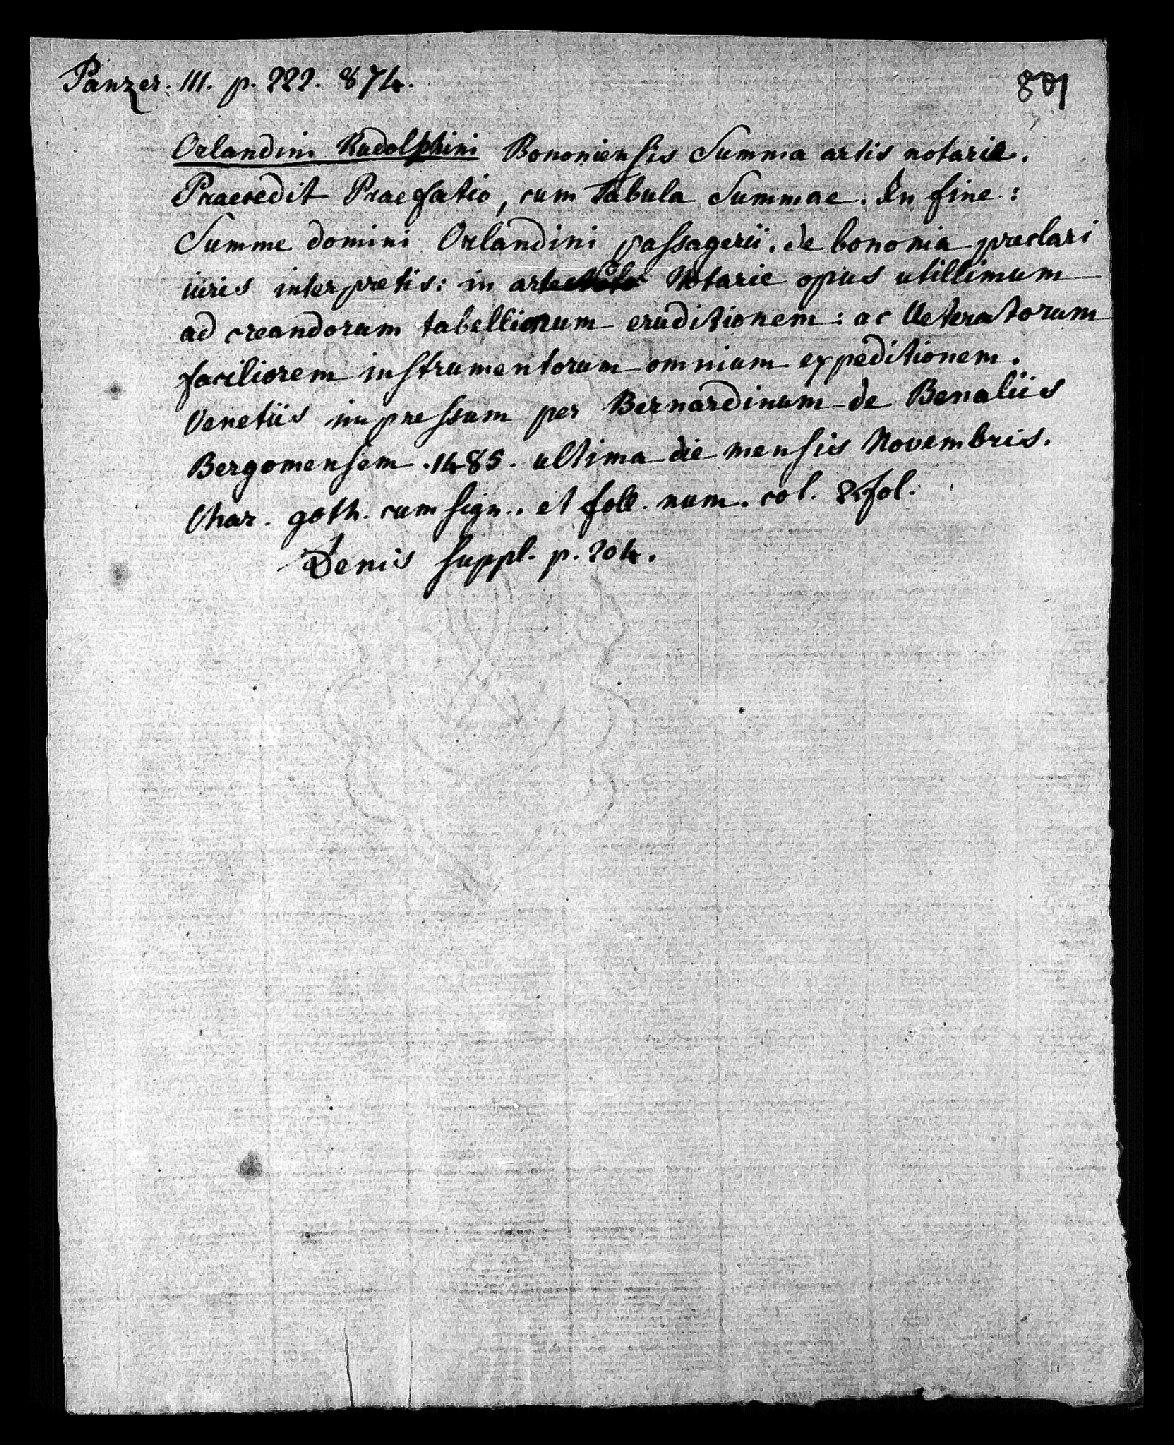 Panzer. III. p. 222. 874.
801
Orlandini Rudolphini Bononiensis Summa artis notarie.
Praecedit Praefatio, cum Tabula Summae. In fine:
Summe domini Orlandini passagerii. de bononia preclari
iuris interpretis: in arte Notarie opus utillimum
ad creandorum tabellionum eruditionem: ac Ueteratorum
faciliorem instrumentorum omnium expeditionem.
Venetiis impressum per Bernardinum de Benaliis
Bergomensem .1485. ultima die mensis Novembris.
Char. goth. cum sign. et foll. num. col. 2. fol.
Denis suppl. p. 204.